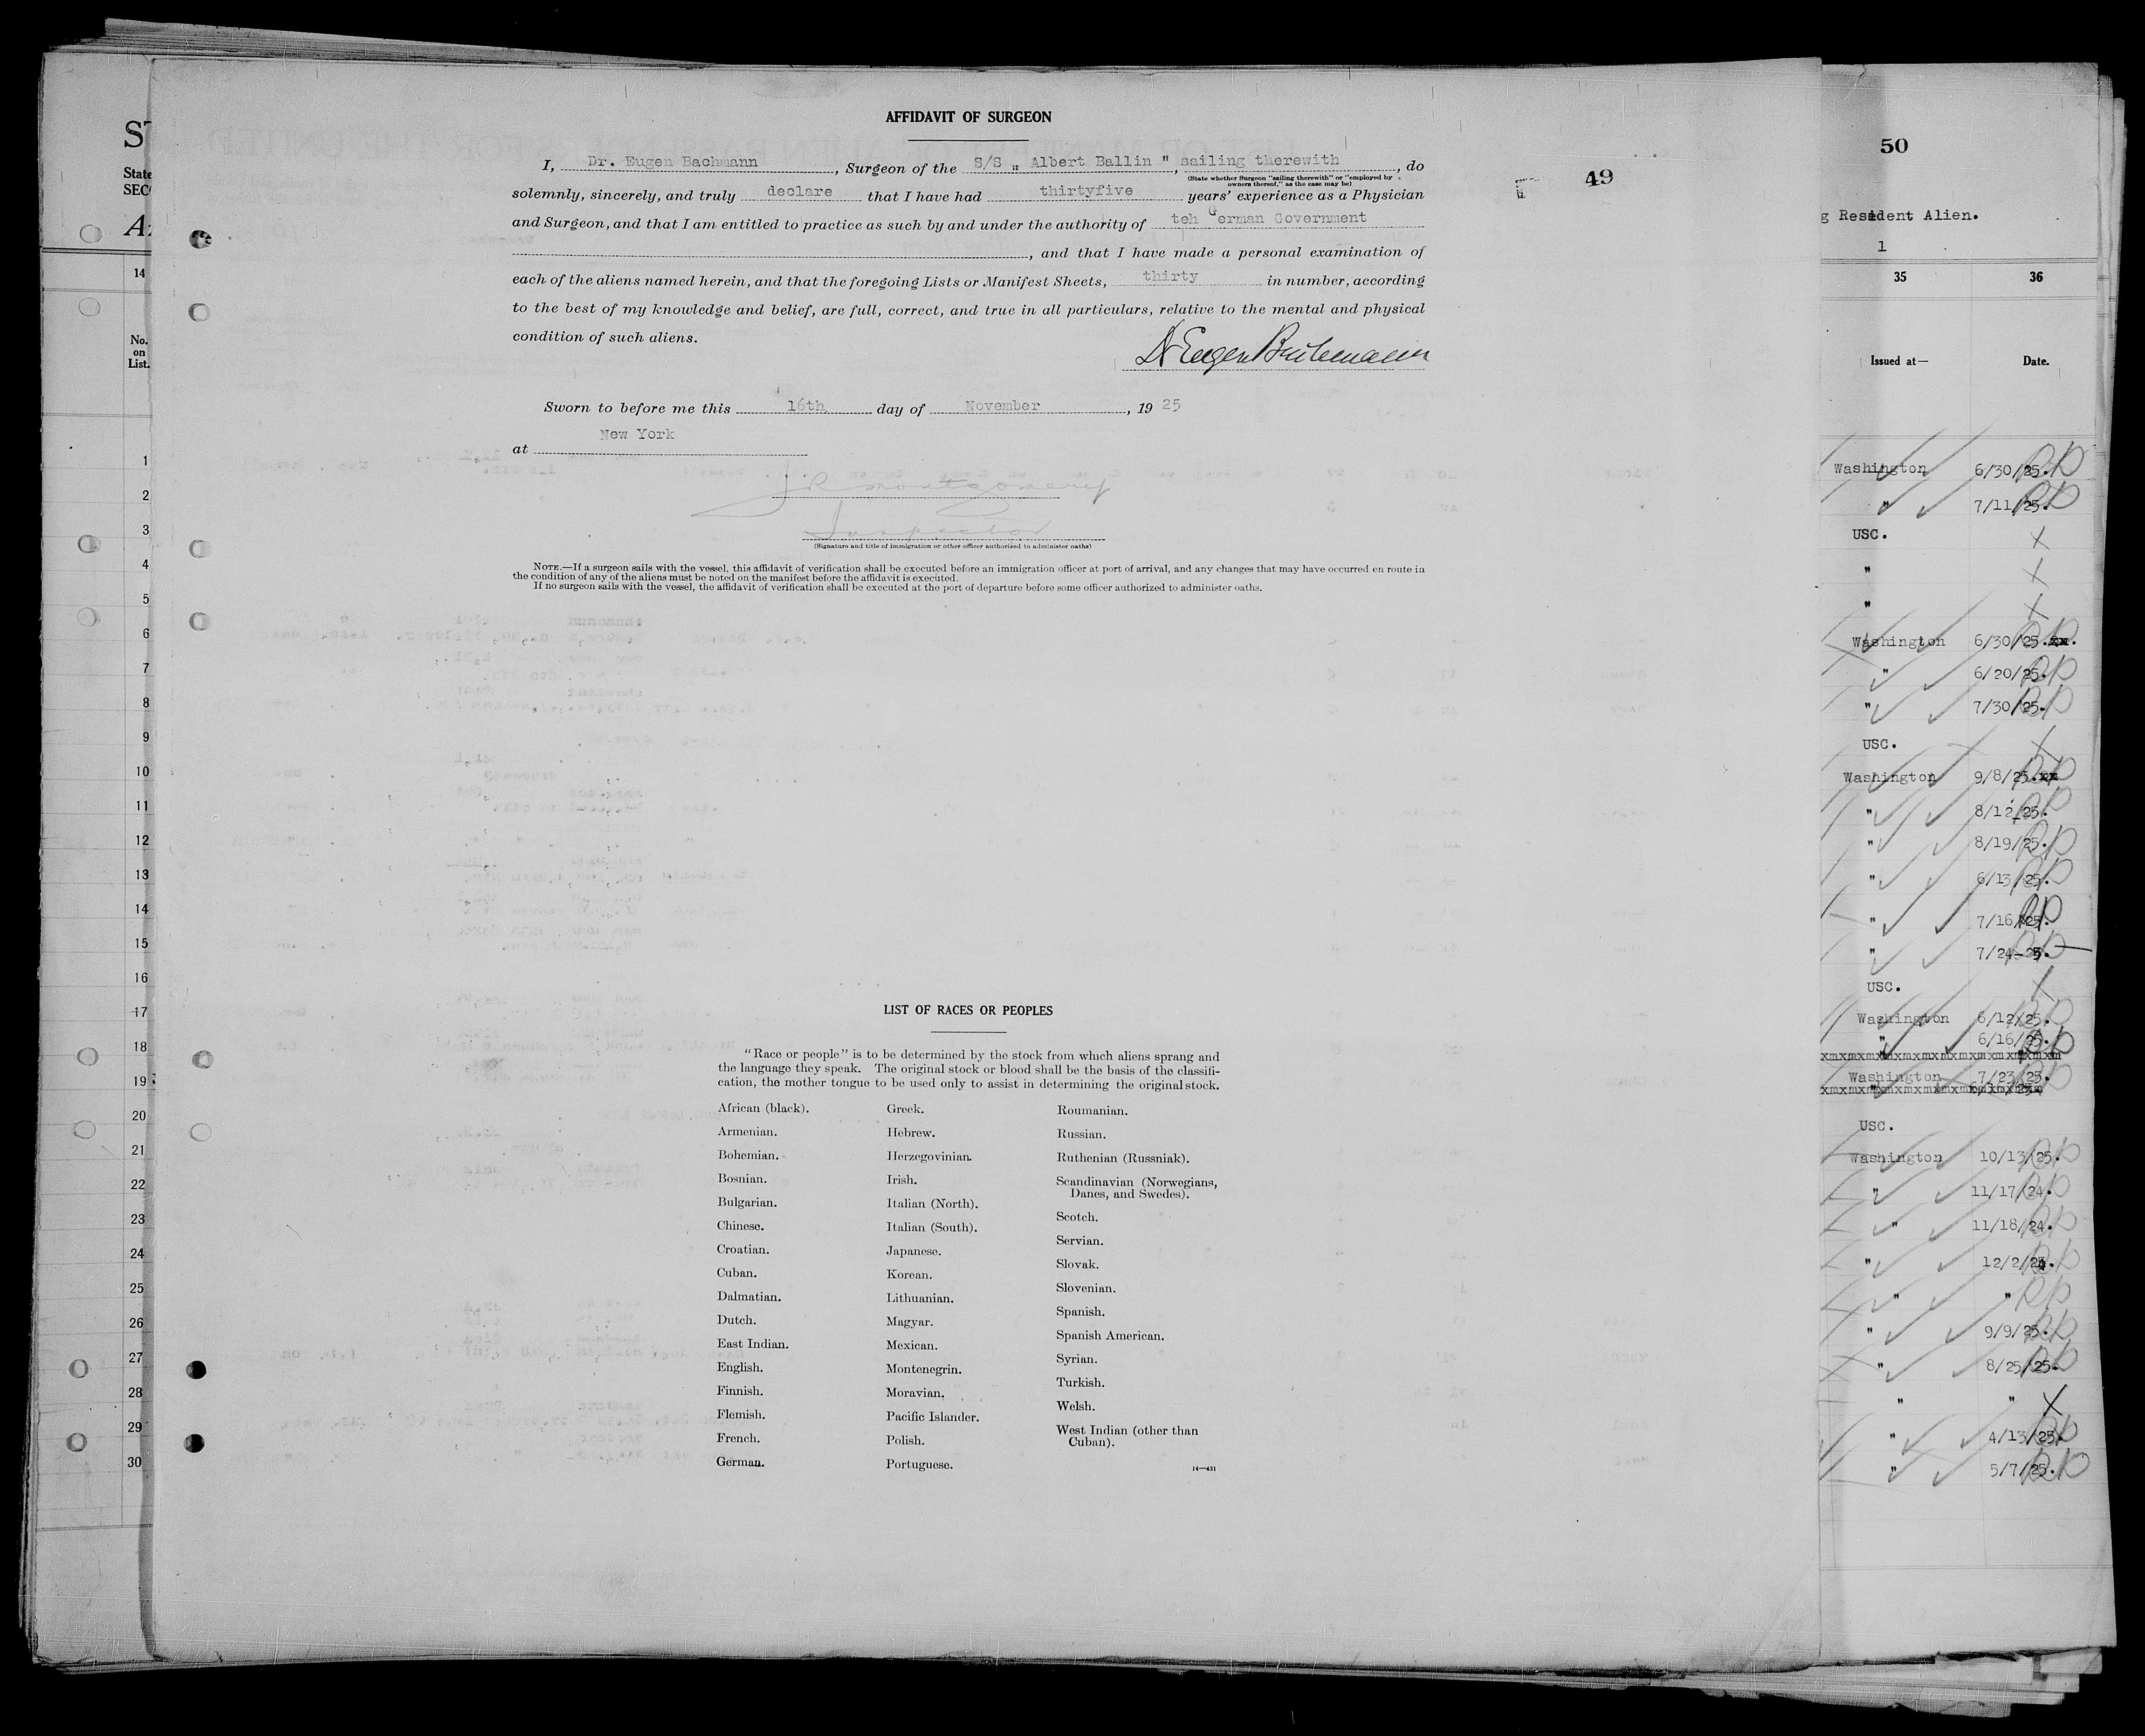 AFFIDAVIT OF SURGEON
I, Dr. Eugen Bachmann, Surgeon of the S/S „ Albert Ballin ", sailing therewith, do
(State whether Surgeon "sailing therewith" or "employed by
owners thereof," as the case may be)
solemnly, sincerely, and truly declare that I have had thirtyfive years' experience as a Physician
and Surgeon, and that I am entitled to practice as such by and under the authority of teh German Government
, and that I have made a personal examination of
each of the aliens named herein, and that the foregoing Lists or Manifest Sheets, thirty in number, according
to the best of my knowledge and belief, are full, correct, and true in all particulars, relative to the mental and physical
condition of such aliens.
Dr Eugen Bachmann
Sworn to before me this 16th day of November, 19 25
at New York
J R Montgomery
Inspector
(Signature and title of immigration or other officer authorized to administer oaths)
NOTE.—If a surgeon sails with the vessel, this affidavit of verification shall be executed before an immigration officer at port of arrival, and any changes that may have occurred en route in
the condition of any of the aliens must be noted on the manifest before the affidavit is executed.
If no surgeon sails with the vessel, the affidavit of verification shall be executed at the port of departure before some officer authorized to administer oaths.
49
LIST OF RACES OR PEOPLES
"Race or people" is to be determined by the stock from which aliens sprang and
the language they speak. The original stock or blood shall be the basis of the classifi-
cation, the mother tongue to be used only to assist in determining the original stock.
African (black).
Armenian.
Bohemian.
Bosnian.
Bulgarian.
Chinese.
Croatian.
Cuban.
Dalmatian.
Dutch.
East Indian.
English.
Finnish.
Flemish.
French.
German.
Greek.
Hebrew.
Herzegovinian.
Irish.
Italian (North).
Italian (South).
Japanese.
Korean.
Lithuanian.
Magyar.
Mexican.
Montenegrin.
Moravian.
Pacific Islander.
Polish.
Portuguese.
Roumanian.
Russian.
Ruthenian (Russniak).
Scandinavian (Norwegians,
Danes, and Swedes).
Scotch.
Servian.
Slovak.
Slovenian.
Spanish.
Spanish American.
Syrian.
Turkish.
Welsh.
West Indian (other than
Cuban).
14—431
ST
State
SEC
A
14
No.
on
List.
1
2
3
4
5
6
7
8
9
10
11
12
13
14
15
16
17
18
19
20
21
22
23
24
25
26
27
28
29
30
50
g Resident Alien.
1
35 36
Issued at— Date.
Washington 6/30/25.
" 7/11/25.
USC.
"
"
Washington 6/30/25.xx.
" 6/20/25.
" 7/30/25.
USC.
Washington 9/8/25.xx
" 8/12/25.
" 8/19/25.
" 6/13/25.
" 7/16/25.
" 7/24-25.
USC.
Washington 6/12/25.
" 6/16/25.
Washington 7/23/25.
USC.
Washington 10/13/25.
" 11/17/24.
" 11/18/24.
" 12/2/24.
" "
" 9/9/25.
" 8/25/25.
" "
" 4/13/25.
" 5/7/25.